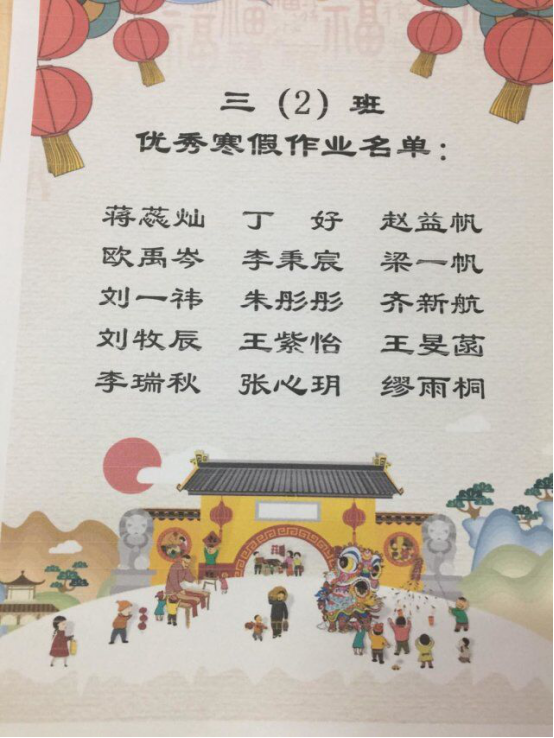 三（2）班
优秀寒假作业名单：
蒋蕊灿 丁 好 赵益帆
欧禹岑 李秉宸 梁一帆
刘一祎 朱彤彤 齐新航
刘牧辰 王紫怡 王旻菡
李瑞秋 张心玥 缪雨桐